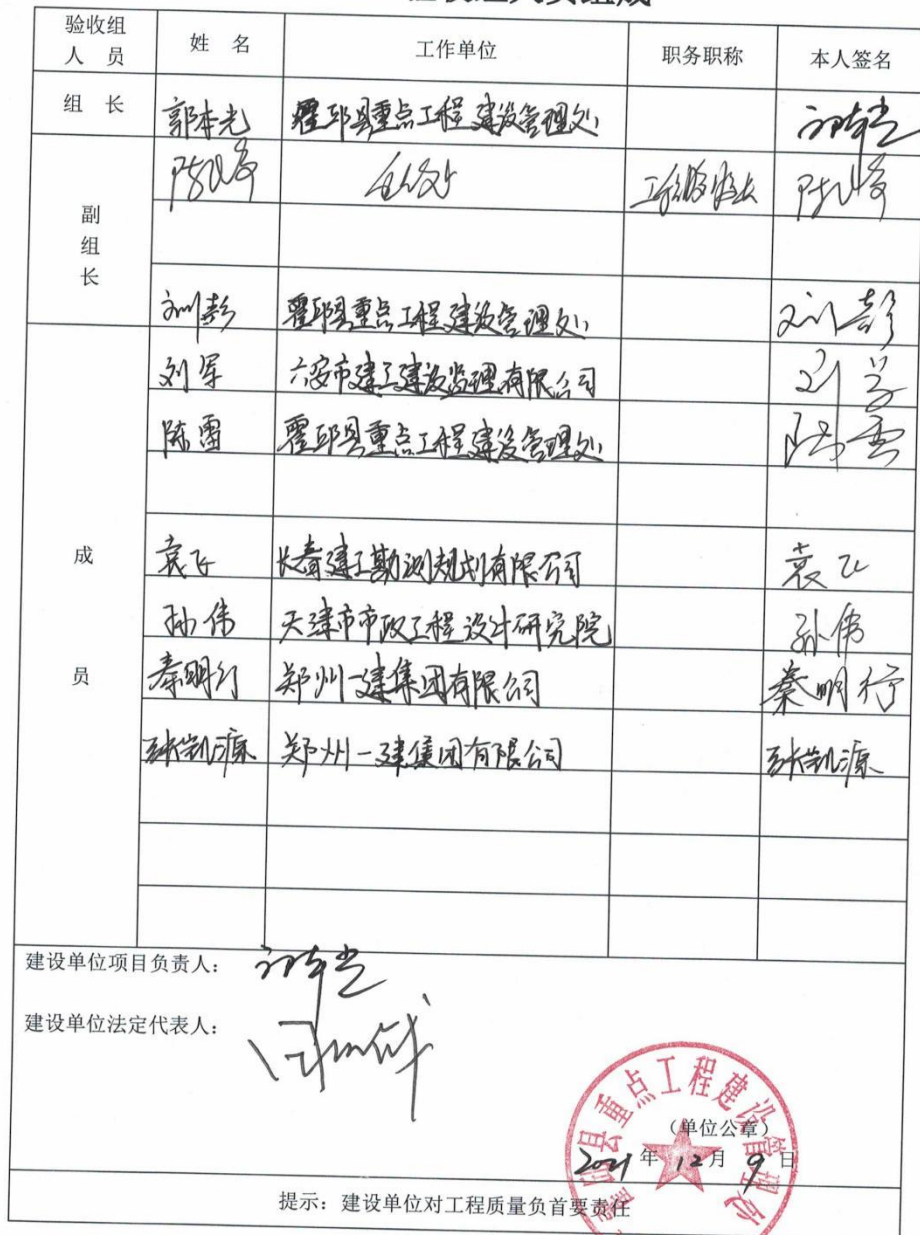 验收组人员 姓 名 工作单位 职务职称 本人签名
组 长 郭本光 霍邱县重点工程建设管理处 郭本光
副组长 重点处
刘彭 霍邱县重点工程建设管理处 刘彭
成员 刘军 六安市建工建设监理有限公司 刘军
陈雷 霍邱县重点工程建设管理处 陈雷
袁飞 长春建工勘测规划有限公司 袁飞
孙伟 天津市市政工程设计研究院 孙伟
秦明行 郑州一建集团有限公司 秦明行
张凯源 郑州一建集团有限公司 张凯源
建设单位项目负责人： 郭本光
建设单位法定代表人：
霍邱县重点工程建设管理处
（单位公章）
2021 年 12 月 9 日
提示：建设单位对工程质量负首要责任